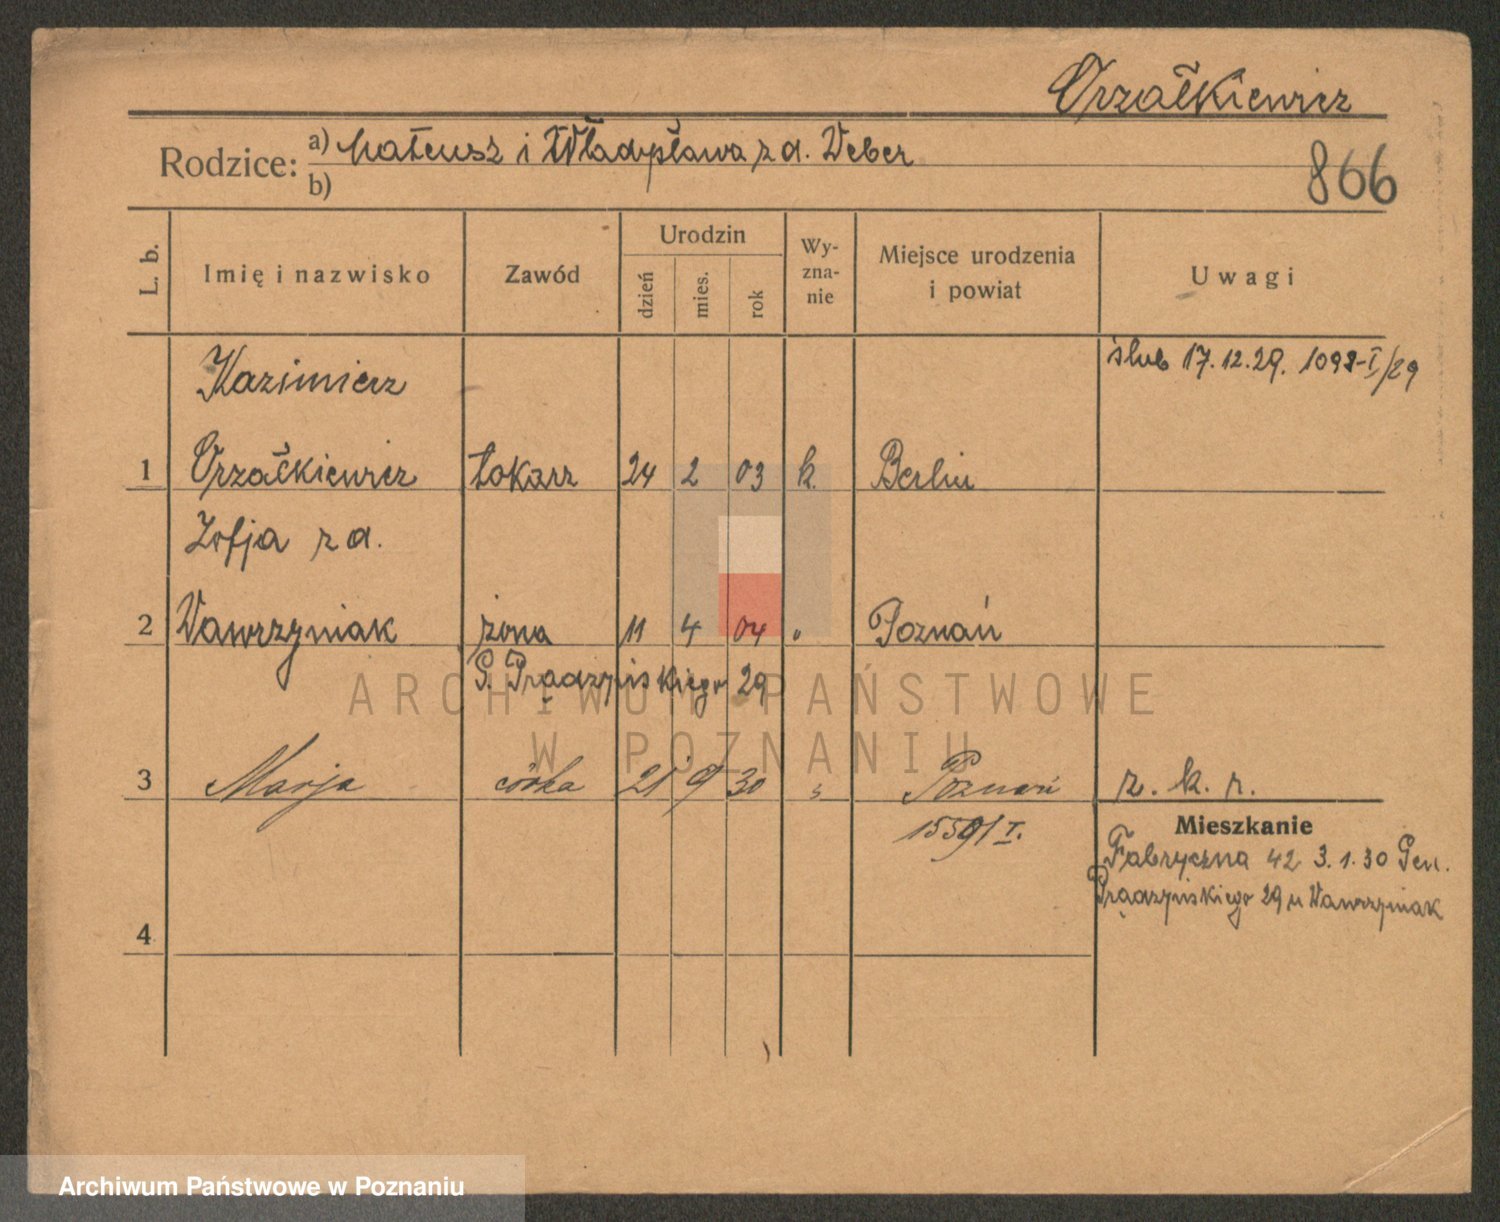 Orzałkiewicz
Rodzice: a) Mateusz i Władysława z d. Weber
b)
866
L. b.
Imię i nazwisko
Zawód
Urodzin
dzień
mies.
rok
Wy-
zna-
nie
Miejsce urodzenia
i powiat
Uwagi
Kazimierz
ślub 17.12.29. 1098-I/29
1 Orzałkiewicz tokarz 24 2 03 k. Berlin
Zofja z d.
2 Wawrzyniak żona 11 4 04 " Poznań
G. Prądzyńskiego 29
3 Marja córka 21 9 30 " Poznań r. k. r.
1559/I.
Mieszkanie
Fabryczna 42 3.1.30 Gen.
Prądzyńskiego 29 u Wawrzyniak
4
ARCHIWUM PAŃSTWOWE
W POZNANIU
Archiwum Państwowe w Poznaniu